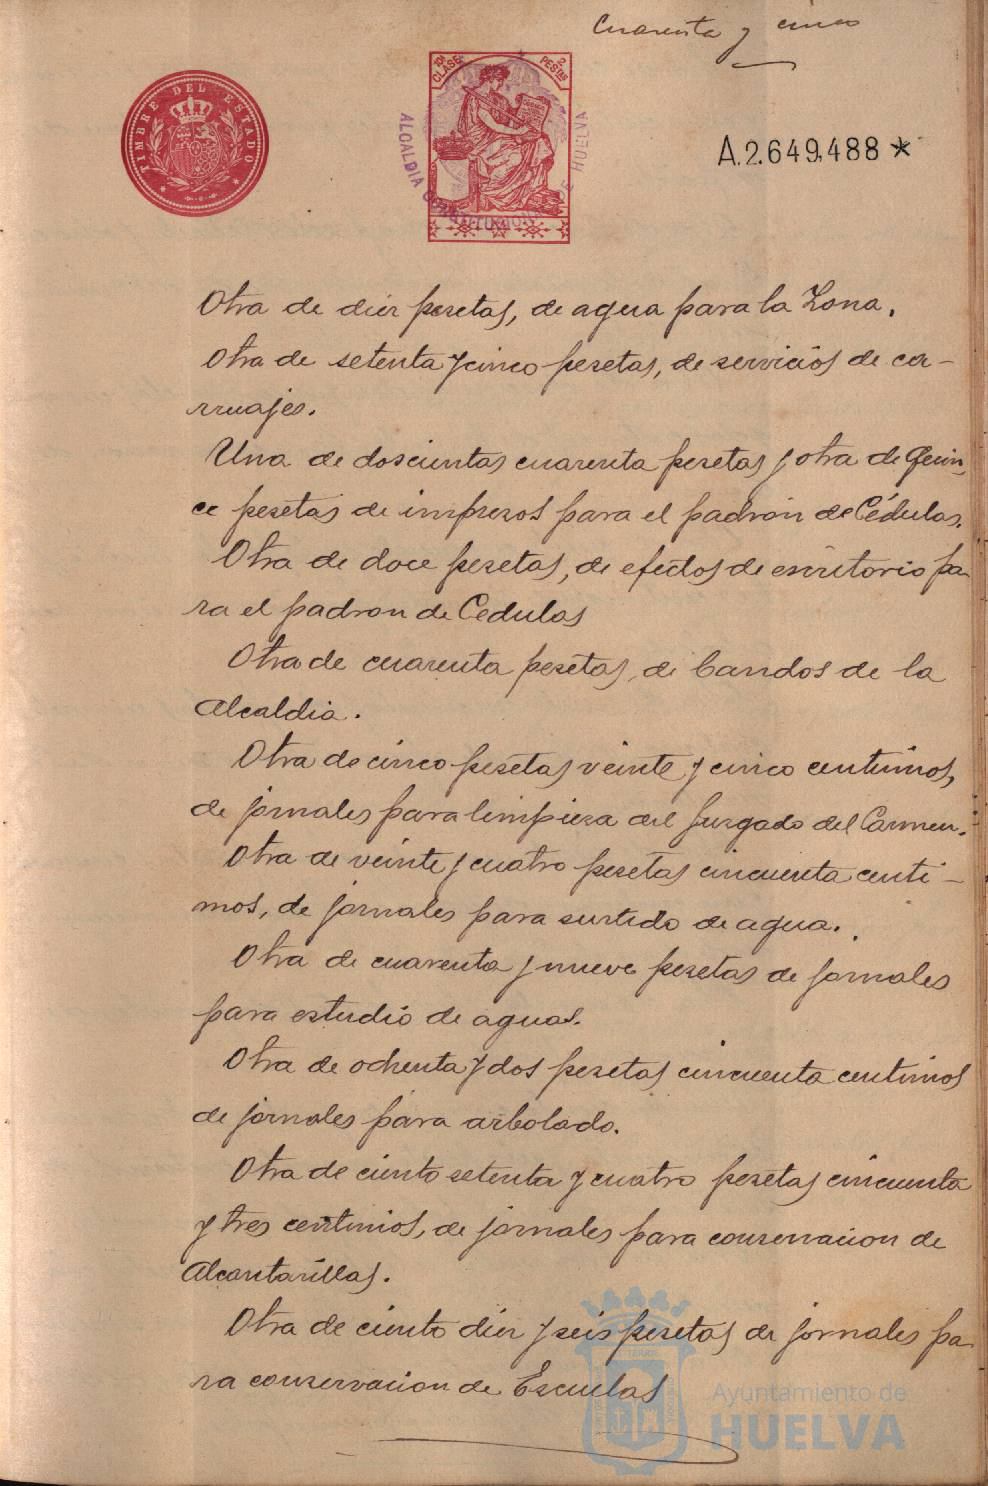 Cuarenta y cinco
TIMBRE DEL ESTADO
10ª CLASE
2 PESTAS
ALCALDIA CONSTITUCIONAL DE HUELVA
A.2.649,488 *
Otra de diez pesetas, de agua para la Zona.
Otra de setenta y cinco pesetas, de servicios de ca-
rruajes.
Una de doscientas cuarenta pesetas y otra de Quin-
ce pesetas de impresos para el padron de Cédulas.
Otra de doce pesetas, de efectos de escritorio pa-
ra el padron de Cedulas
Otra de cuarenta pesetas, de bandos de la
Alcaldia.
Otra de cinco pesetas veinte y cinco centimos,
de jornales para limpieza del Juzgado del Carmen.
Otra de veinte y cuatro pesetas cincuenta centi-
mos, de jornales para surtido de agua.
Otra de cuarenta y nueve pesetas de jornales
para estudio de aguas.
Otra de ochenta y dos pesetas cincuenta centimos
de jornales para arbolado.
Otra de ciento setenta y cuatro pesetas cincuenta
y tres centimos, de jornales para conservacion de
Alcantarillas.
Otra de ciento diez y seis pesetas de jornales pa-
ra conservacion de Escuelas
Ayuntamiento de
HUELVA